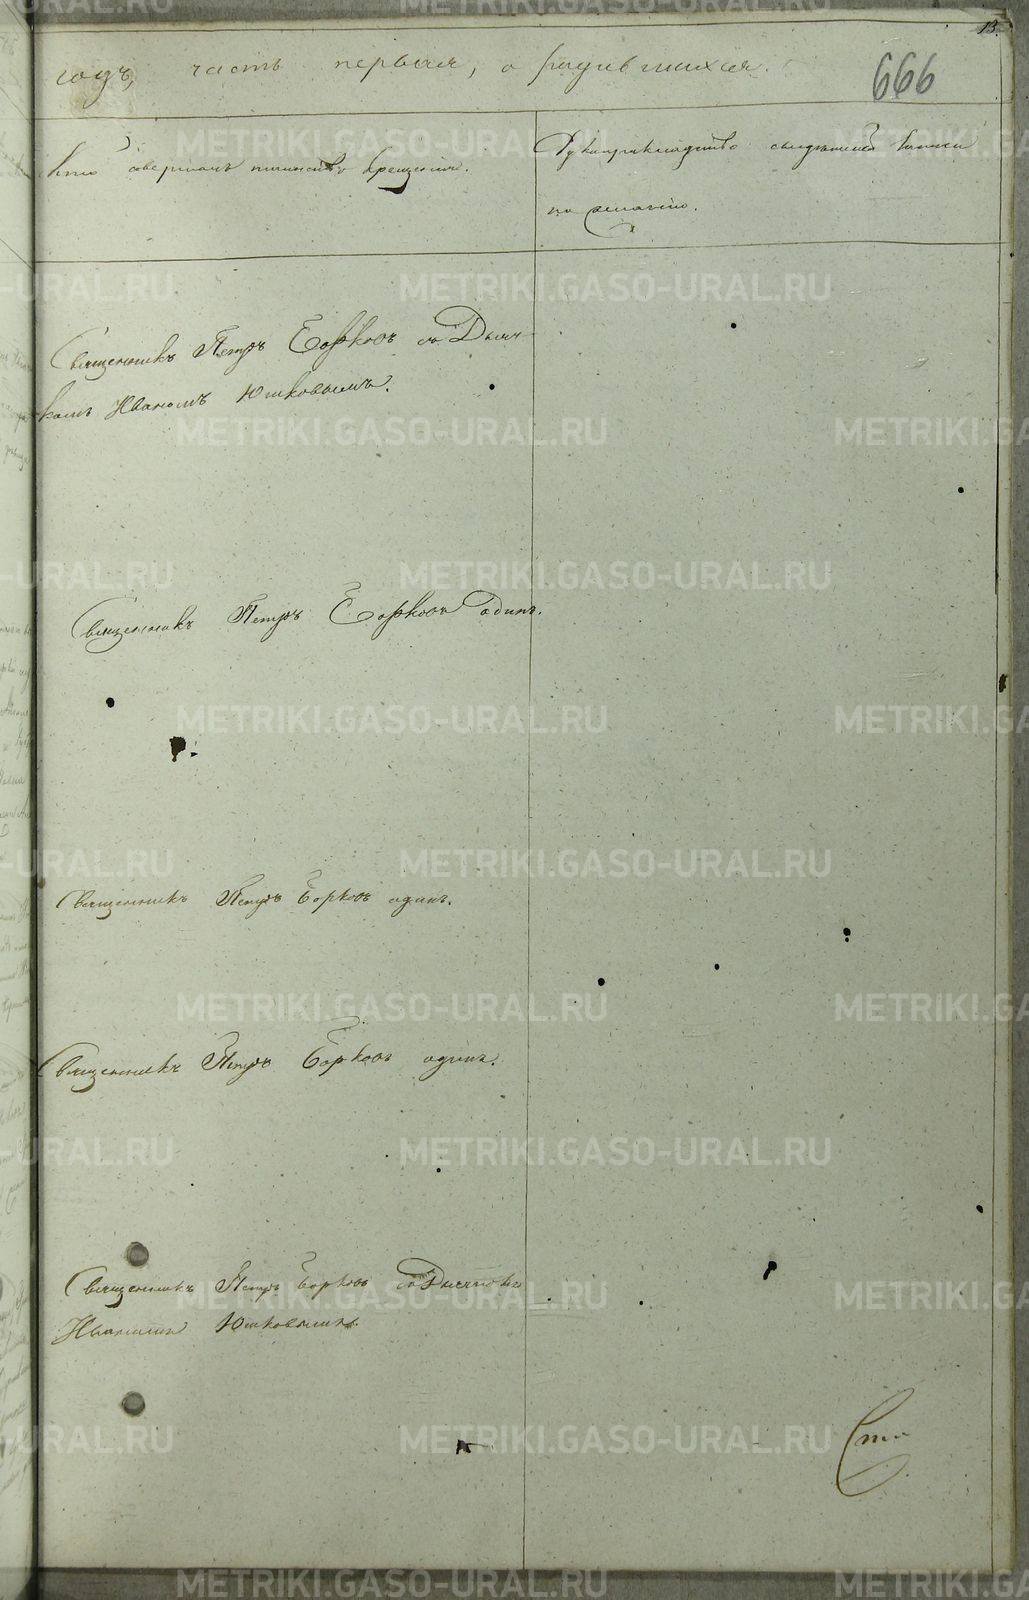 13.
666
годъ, часть первая, о родившихся.
Кто совершалъ таинство крещенія.
Рукоприкладство свидѣтелей записи
по желанію.
Священникъ Петръ Борковъ съ Дьяч-
комъ Иваномъ Юшковымъ.
Священникъ Петръ Борковъ одинъ.
Священникъ Петръ Борковъ одинъ.
Священникъ Петръ Борковъ одинъ.
Священникъ Петръ Борковъ съ Дьячкомъ
Иваномъ Юшковымъ.
METRIKI.GASO-URAL.RU